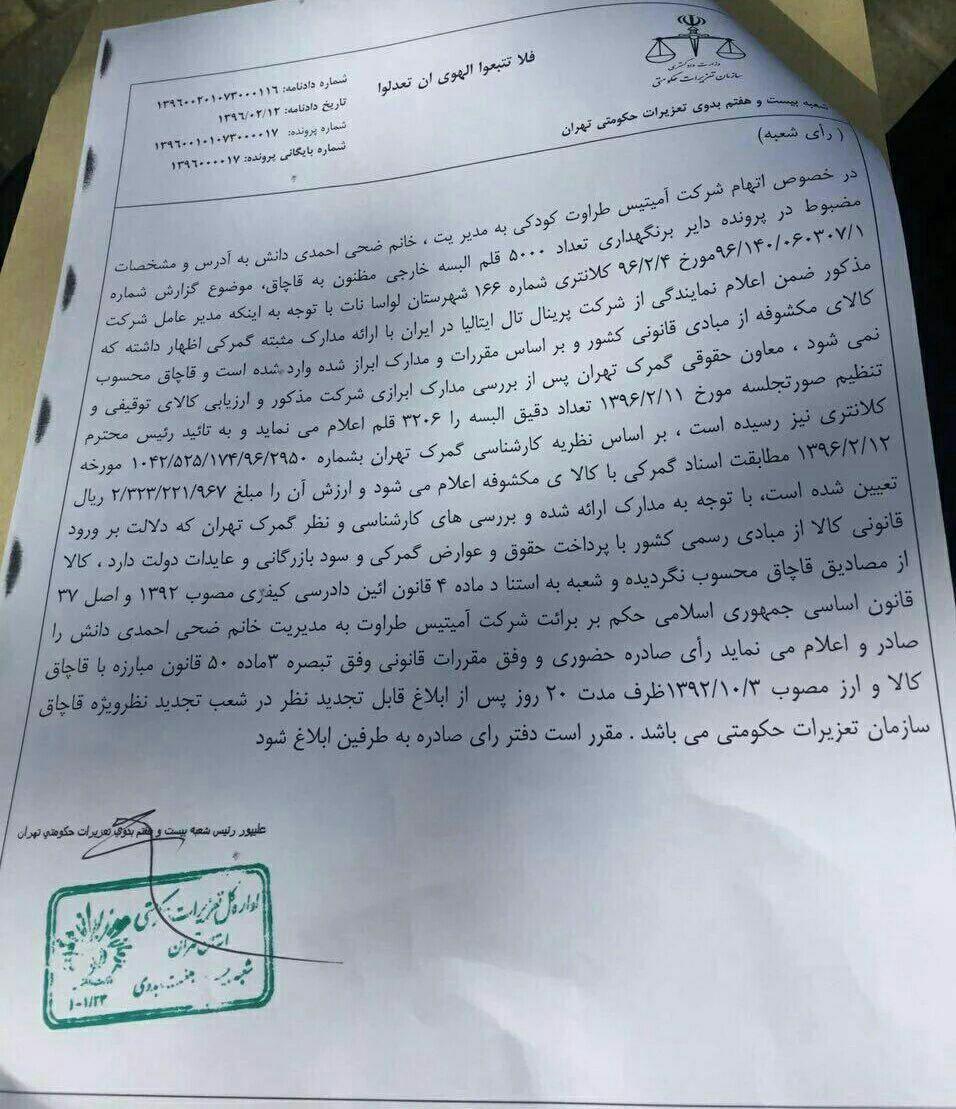 وزارت دادگستری
سازمان تعزیرات حکومتی
فلا تتبعوا الهوی ان تعدلوا
شماره دادنامه: ۱۳۹۶۰۰۲۰۱۰۷۳۰۰۰۱۱۶
تاریخ دادنامه: ۱۳۹۶/۰۲/۱۲
شماره پرونده: ۱۳۹۶۰۰۱۰۱۰۷۳۰۰۰۰۱۷
شماره بایگانی پرونده: ۱۳۹۶۰۰۰۰۱۷
شعبه بیست و هفتم بدوی تعزیرات حکومتی تهران
( رأی شعبه)
در خصوص اتهام شرکت آمیتیس طراوت کودکی به مدیر یت ، خانم ضحی احمدی دانش به آدرس و مشخصات
مضبوط در پرونده دایر برنگهداری تعداد ۵۰۰۰ قلم البسه خارجی مظنون به قاچاق، موضوع گزارش شماره
۹۶/۱۴۰/۰۶۰۳۰۷/۱مورخ ۹۶/۲/۴ کلانتری شماره ۱۶۶ شهرستان لواسا نات با توجه به اینکه مدیر عامل شرکت
مذکور ضمن اعلام نمایندگی از شرکت پرینال تال ایتالیا در ایران با ارائه مدارک مثبته گمرکی اظهار داشته که
کالای مکشوفه از مبادی قانونی کشور و بر اساس مقررات و مدارک ابراز شده وارد شده است و قاچاق محسوب
نمی شود ، معاون حقوقی گمرک تهران پس از بررسی مدارک ابرازی شرکت مذکور و ارزیابی کالای توقیفی و
تنظیم صورتجلسه مورخ ۱۳۹۶/۲/۱۱ تعداد دقیق البسه را ۳۲۰۶ قلم اعلام می نماید و به تائید رئیس محترم
کلانتری نیز رسیده است ، بر اساس نظریه کارشناسی گمرک تهران بشماره ۱۰۴۲/۵۲۵/۱۷۴/۹۶/۲۹۵۰ مورخه
۱۳۹۶/۲/۱۲ مطابقت اسناد گمرکی با کالا ی مکشوفه اعلام می شود و ارزش آن را مبلغ ۲/۳۲۳/۲۲۱/۹۶۷ ریال
تعیین شده است، با توجه به مدارک ارائه شده و بررسی های کارشناسی و نظر گمرک تهران که دلالت بر ورود
قانونی کالا از مبادی رسمی کشور با پرداخت حقوق و عوارض گمرکی و سود بازرگانی و عایدات دولت دارد ، کالا
از مصادیق قاچاق محسوب نگردیده و شعبه به استنا د ماده ۴ قانون ائین دادرسی کیفری مصوب ۱۳۹۲ و اصل ۳۷
قانون اساسی جمهوری اسلامی حکم بر برائت شرکت آمیتیس طراوت به مدیریت خانم ضحی احمدی دانش را
صادر و اعلام می نماید رأی صادره حضوری و وفق مقررات قانونی وفق تبصره ۳ماده ۵۰ قانون مبارزه با قاچاق
کالا و ارز مصوب ۱۳۹۲/۱۰/۳ظرف مدت ۲۰ روز پس از ابلاغ قابل تجدید نظر در شعب تجدید نظرویژه قاچاق
سازمان تعزیرات حکومتی می باشد . مقرر است دفتر رای صادره به طرفین ابلاغ شود
علیپور رئیس شعبه بیست و هفتم بدوی تعزیرات حکومتی تهران
اداره کل تعزیرات حکومتی
استان تهران
شعبه بیست هفتم بدوی
۱-۱/۲۳